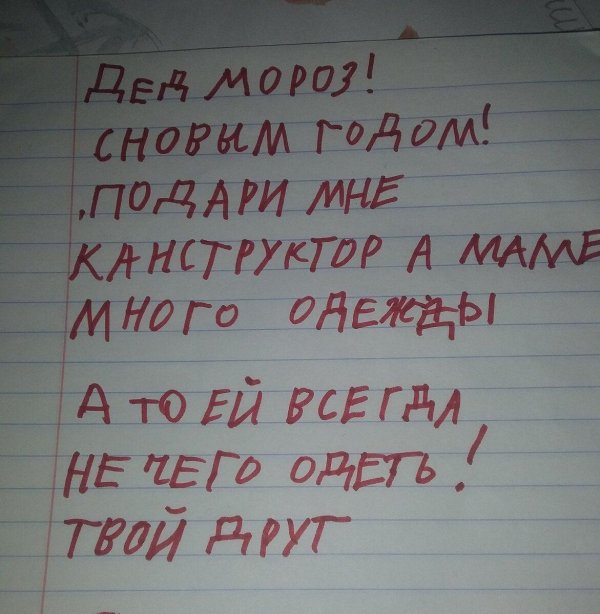 ДЕД МОРОЗ!
СНОВЫМ ГОДОМ!
,ПОДАРИ МНЕ
КАНСТРУКТОР А МАМЕ
МНОГО ОДЕЖДЫ
А ТО ЕЙ ВСЕГДА
НЕ ЧЕГО ОДЕТЬ!
ТВОЙ ДРУГ